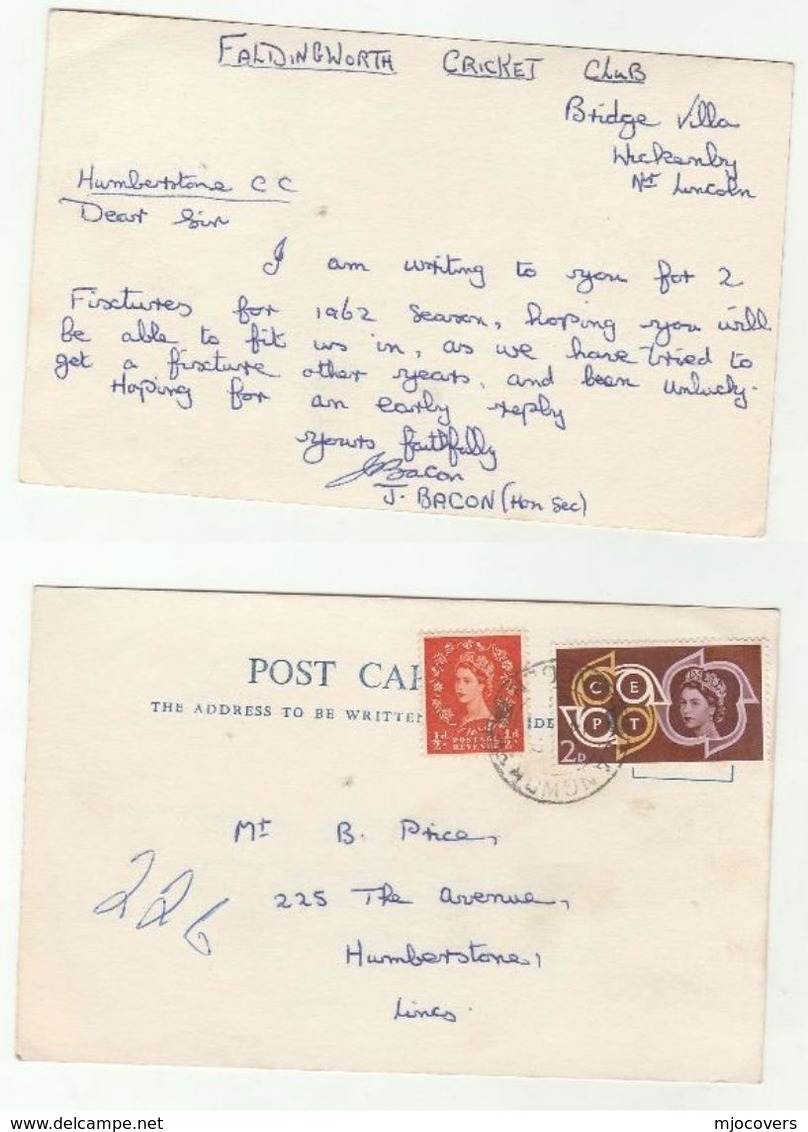 FALDINGWORTH CRICKET CLUB
Bridge Villa
Wickenby
Nr Lincoln
Humberstone C C
Dear Sir
I am writing to you for 2
Fixtures for 1962 season, hoping you will
be able to fit us in, as we have tried to
get a fixture other years, and been unlucky.
Hoping for an early reply
yours faithfully
JBacon
J. BACON (Hon Sec)
POST CAR
THE ADDRESS TO BE WRITTEN IDE
½d POSTAGE REVENUE ½d
C E P T
2D
Mr B. Price,
225 The Avenue,
Humberstone,
Lincs.
226
mjocovers